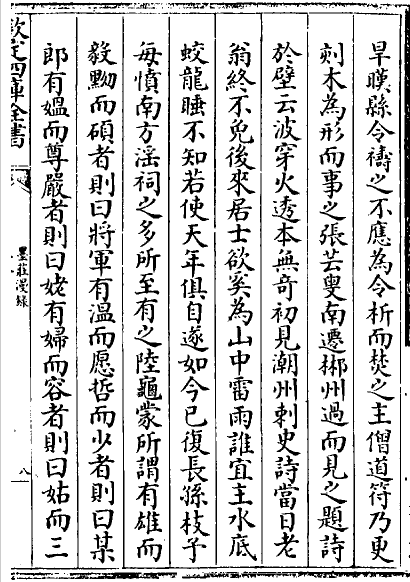 旱暵縣令禱之不應為令析而焚之主僧道符乃更
刻木為形而事之張芸叟南遷郴州過而見之題詩
於壁云波穿火透本無奇初見潮州刺史詩當日老
翁終不免後來居士欲奚為山中雷雨誰宜主水底
蛟龍睡不知若使天年俱自遂如今已復長孫枝予
每憤南方淫祠之多所至有之陸龜蒙所謂有雄而
毅黝而碩者則曰將軍有溫而愿哲而少者則曰某
郎有媼而尊嚴者則曰姥有婦而容者則曰姑而三
欽定四庫全書
墨莊漫錄
八